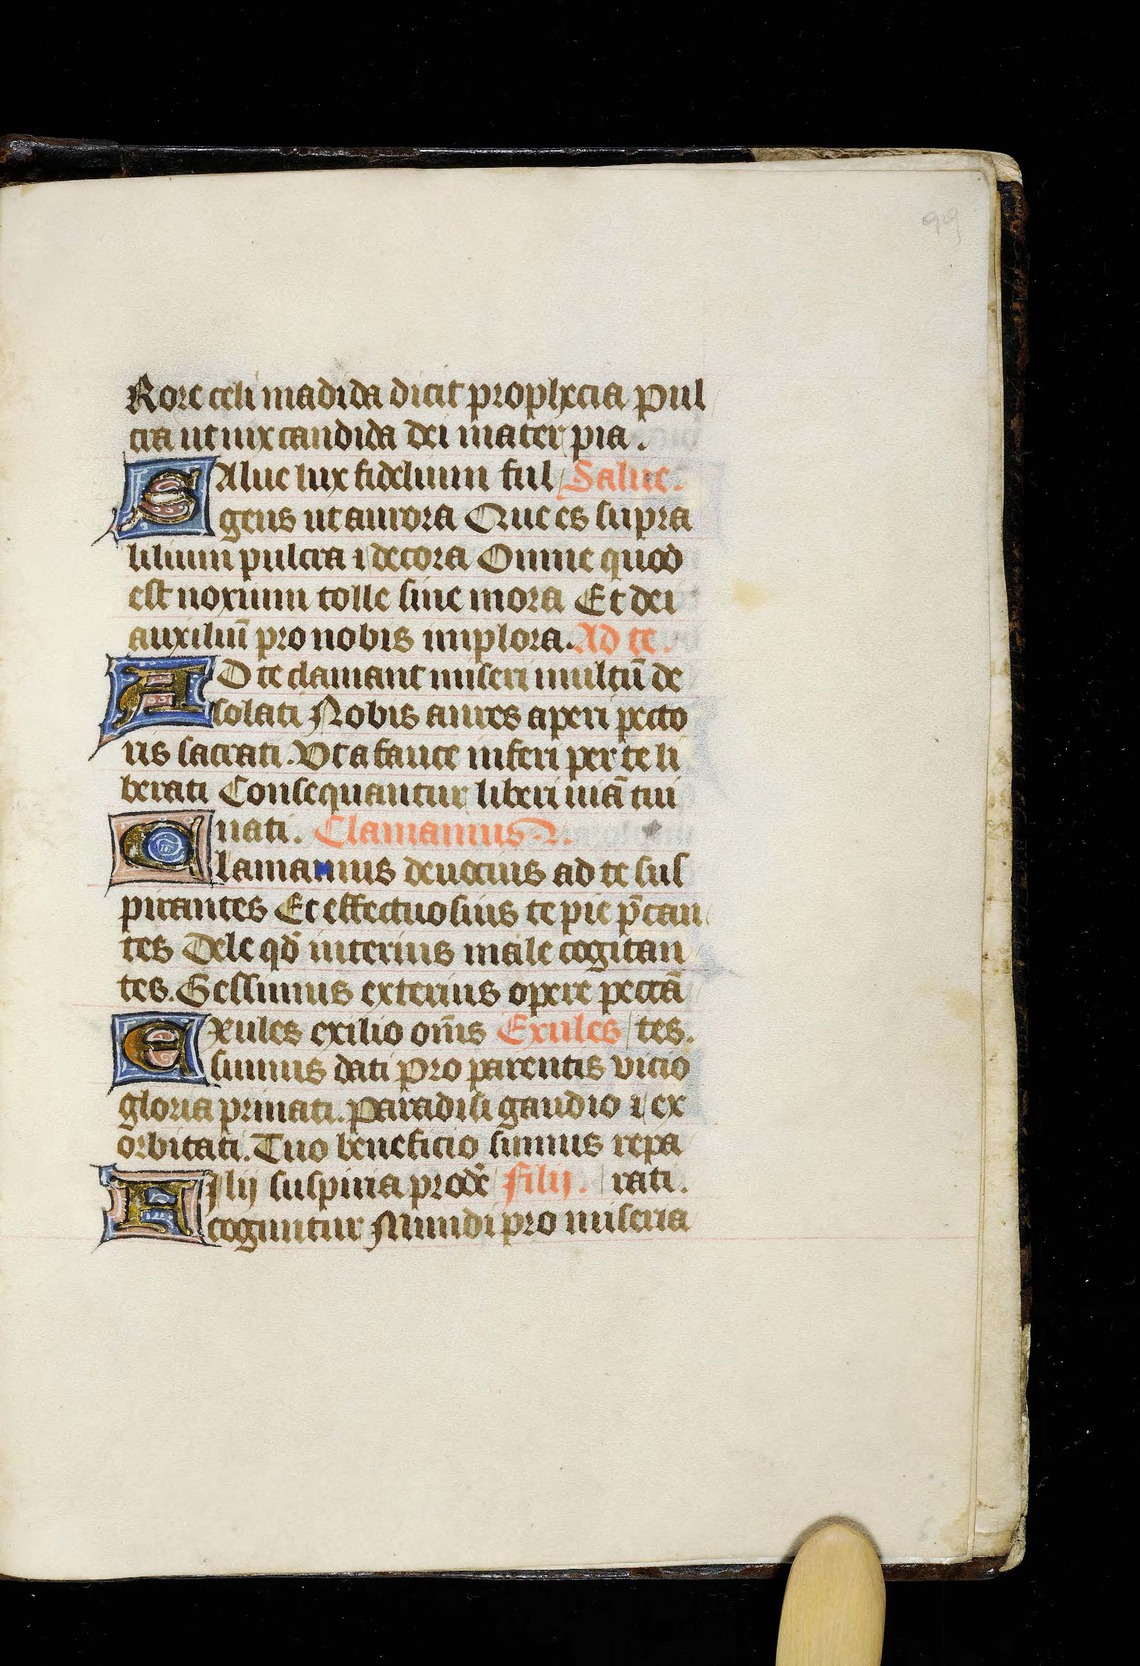 99
Rore celi madida dicit prophecia Pul
cra ut nix candida dei mater pia.
SAlue lux fidelium ful Salue.
gens ut aurora Que es supra
lilium pulcra ⁊ decora Omne quod
est noxium tolle sine mora Et dei
auxiliū pro nobis implora. Ad te.
AD te clamant miseri multū de
solati Nobis aures aperi pecto
ris sacrati. Vt a fauce inferi per te li
berati Consequantur liberi uiā tui
nati. Clamamus.
Clamamus deuocius ad te sus
pirantes Et effectuosius te pie p̄can
tes Dele qd̄ interius male cogitan
tes. Gessimus exterius opere peccā
EXules exilio om̄s Exules tes.
sumus dati Pro parentis vicio
gloria priuati. Paradisi gaudio ⁊ ex
orbitati. Tuo beneficio simus repa
FIlij suspiria prodr̄e Filij. rati.
coguntur Mundi pro miseria